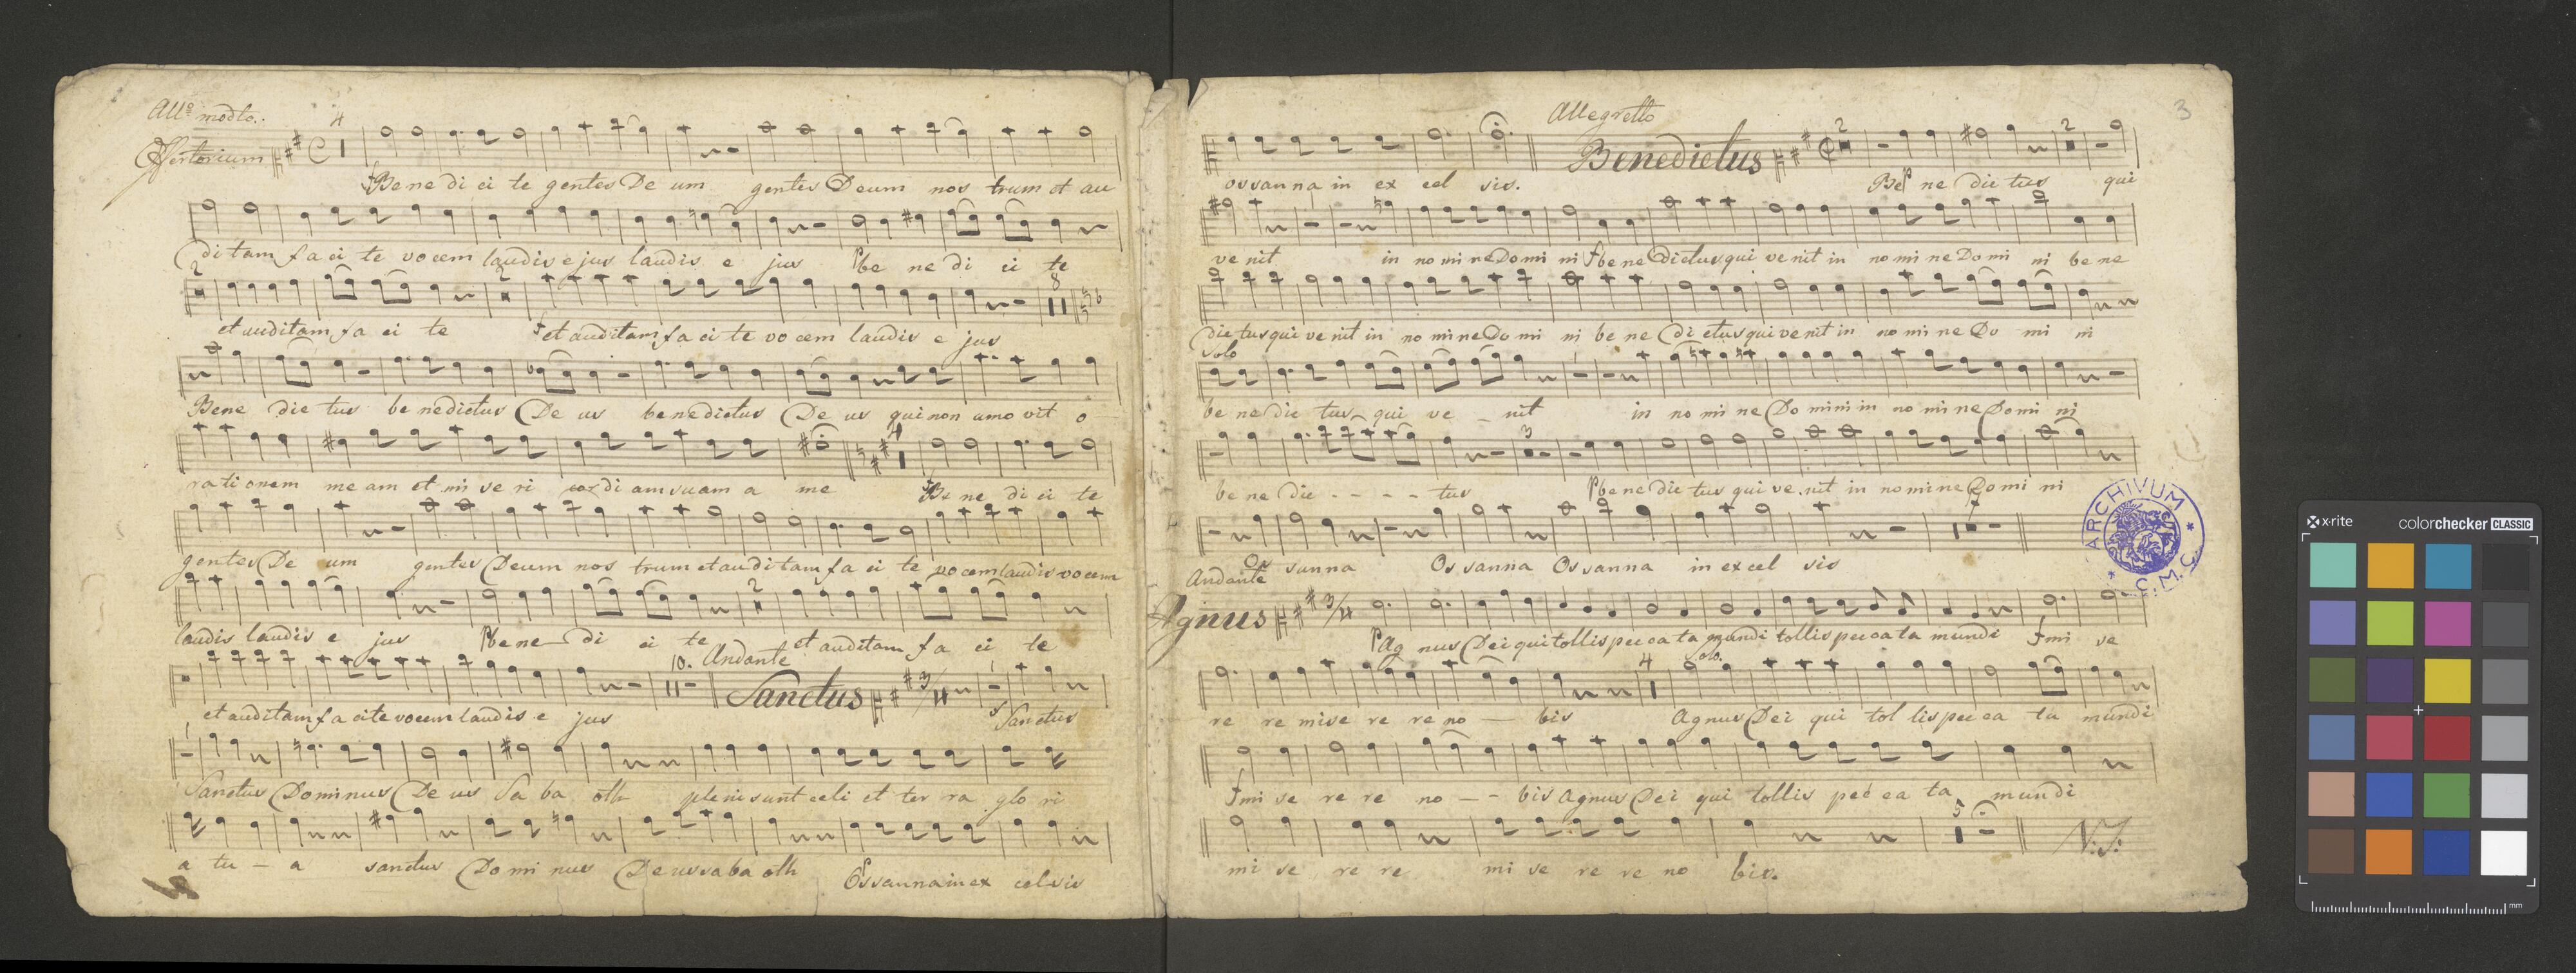 Allo. modto.
4
Offertorium C
f Be ne di ci te gentes De um gentes Deum nos trum et au
di tam fa ci te vocem laudis ejus laudis e jus p be ne di ci te
2 2 8
et auditam fa ci te f et auditam fa ci te vo cem laudis e jus
Bene dic tus be nedictus De us benedictus De us qui non amo vit o
4
rati onem me am et mi se ri cor di am suam a me f Be ne di ci te
gentes De um gentes Deum nos trum et auditam fa ci te vocem laudis vocem
2
laudis laudis e jus p be ne di ci te et auditam fa ci te
10. Andante
Sanctus 3/4
et auditam fa cite vocem laudis e jus f Sanctus
Sanctus Dominus De us Sa ba oth pleni sunt celi et ter ra glo ri
a tu - a sanctus Do mi nus Deus saba oth Ossanna in ex celsis
3
Allegretto
Benedictus 2 2
ossanna in ex cel sis. Be p ne dic tus qui
ve nit in no mi ne Do mi ni f be ne dictus qui ve nit in no mi ne Do mi ni be ne
dic tus qui ve nit in no mi ne Do mi ni be ne di ctus qui ve nit in no mi ne Do mi ni
Solo
be ne dic tus qui ve - nit in no mi ne Do mini in no mi ne Domi ni
3
be ne dic - - - - tus p be ne dic tus qui ve nit in no mi ne Do mi ni
7
Os sanna Os sanna Os sanna in ex cel sis
ARCHIVUM * C.M.C. *
Andante
Agnus 3/4
p Ag nus Dei qui tollis pec ca ta mundi tollis pec ca ta mundi f mi se
4 Solo.
re re mise re re no - bis Agnus Dei qui tol lis pec ca ta mundi
f mi se re re no - - bis Agnus Dei qui tollis pec ca ta mundi
5
V:S:
mi se re re mi se re re no bis.
x-rite colorchecker CLASSIC
mm